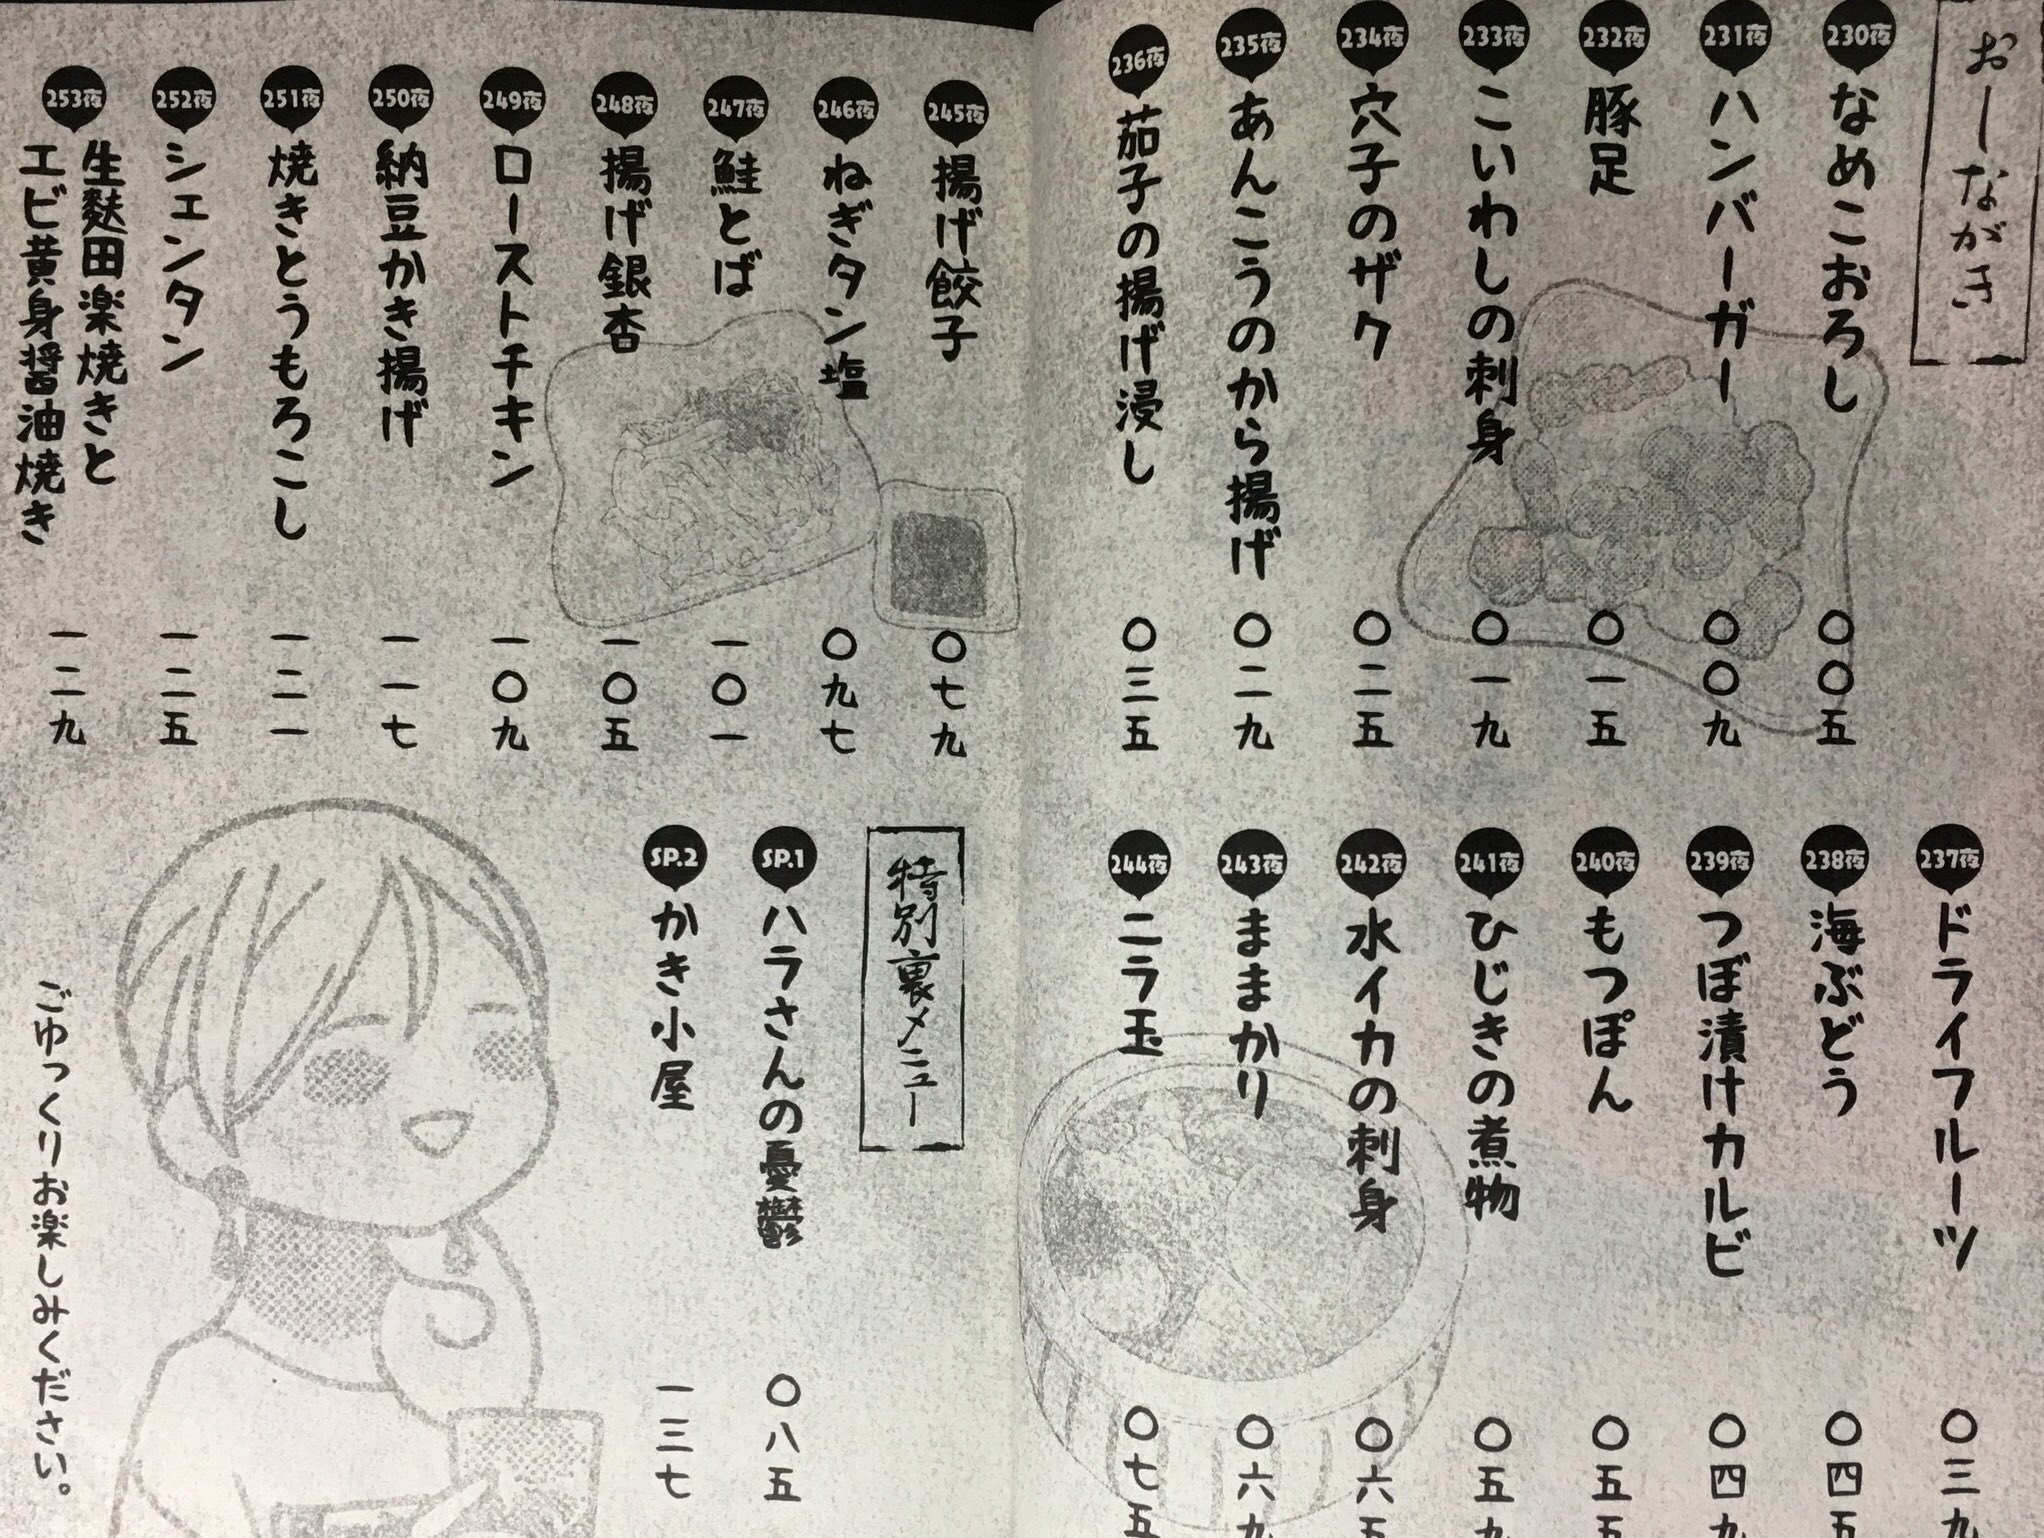 おしながき
230夜 なめこおろし 〇〇五
231夜 ハンバーガー 〇〇九
232夜 豚足 〇一五
233夜 こいわしの刺身 〇一九
234夜 穴子のザク 〇二五
235夜 あんこうのから揚げ 〇二九
236夜 茄子の揚げ浸し 〇三五
237夜 ドライフルーツ 〇三九
238夜 海ぶどう 〇四五
239夜 つぼ漬けカルビ 〇四九
240夜 もつぽん 〇五五
241夜 ひじきの煮物 〇五九
242夜 水イカの刺身 〇六五
243夜 ままかり 〇六九
244夜 ニラ玉 〇七五
245夜 揚げ餃子 〇七九
246夜 ねぎタン塩 〇九七
247夜 鮭とば 一〇一
248夜 揚げ銀杏 一〇五
249夜 ローストチキン 一〇九
250夜 納豆かき揚げ 一一七
251夜 焼きとうもろこし 一二一
252夜 シェンタン 一二五
253夜 生麩田楽焼きと
エビ黄身醤油焼き 一二九
特別裏メニュー
SP.1 ハラさんの憂鬱 〇八五
SP.2 かき小屋 一三七
ごゆっくりお楽しみください。